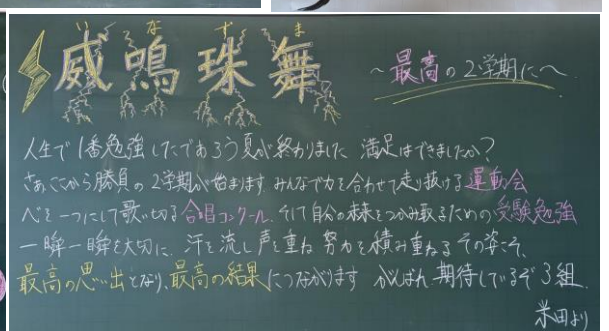 いなずま
威鳴珠舞
～最高の2学期に～
人生で1番勉強したであろう夏が終わりました 満足はできましたか?
さぁここから勝負の2学期が始まります みんなで力を合わせて走り抜ける運動会
心を一つにして歌い切る合唱コンクール、そして自分の未来をつかみ取るための受験勉強
一瞬一瞬を大切に、汗を流し声を重ね 努力を積み重ねるその姿こそ、
最高の思い出となり、最高の結果につながります がんばれ 期待しているぞ3組
米田より